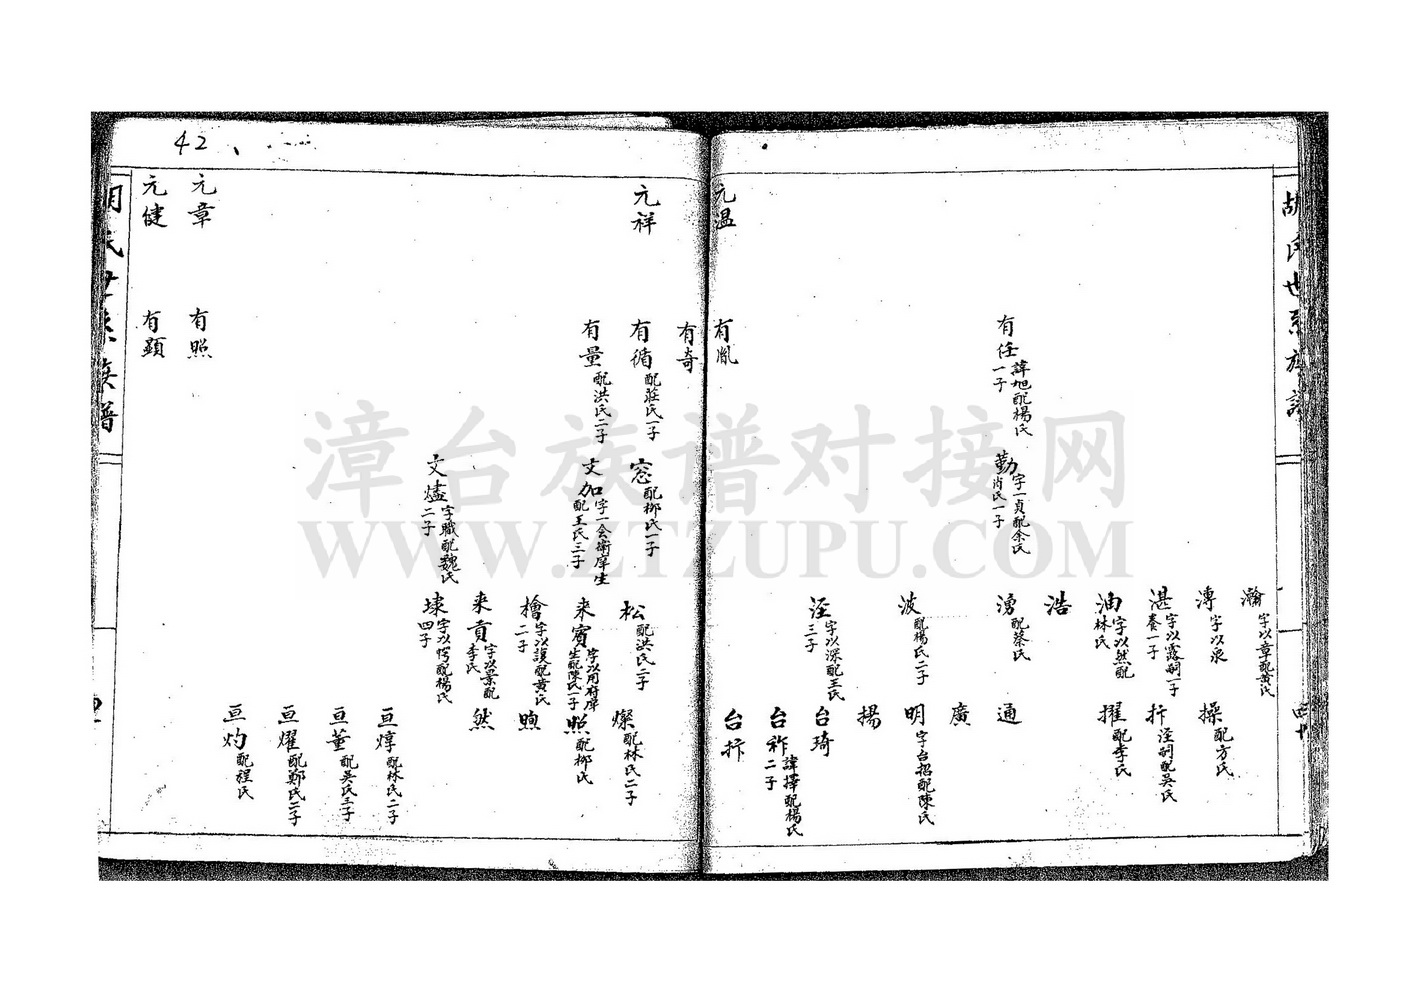 胡氏世系族譜
瀚 字以章配黃氏
漙 字以永
操 配方氏
湛 字以露嗣一子
養一子
拤 涇嗣配吳氏
油 字以然配
林氏
擢 配李氏
浩
湧 配蔡氏
通
有任 諱旭配楊氏
一子
勤 字一貞配余氏
肖氏一子
廣
波 配楊氏二子
明 字台招配陳氏
揚
涇 字以深配王氏
三子
台琦
台祚 諱擇配楊氏
二子
台拤
元温
有胤
有奇
元祥
有循 配莊氏一子
窓 配柳氏一子
松 配洪氏二子
燦 配林氏二子
有量 配洪氏二子
文加 字一会衛庠生
配王氏三子
来賓 字以用府庠
生配陳氏一子
照 配柳氏
檜 字以護配黃氏
二子
煦
来貢 字以業配
李氏
然
文燼 字職配魏氏
二子
埭 字以愕配楊氏
四子
亘焞 配林氏二子
亘董 配吳氏三子
亘燿 配鄭氏二子
亘灼 配程氏
元章
有照
元健
有顕
胡氏世系族譜
42
漳台族谱对接网
WWW.ZTZUPU.COM